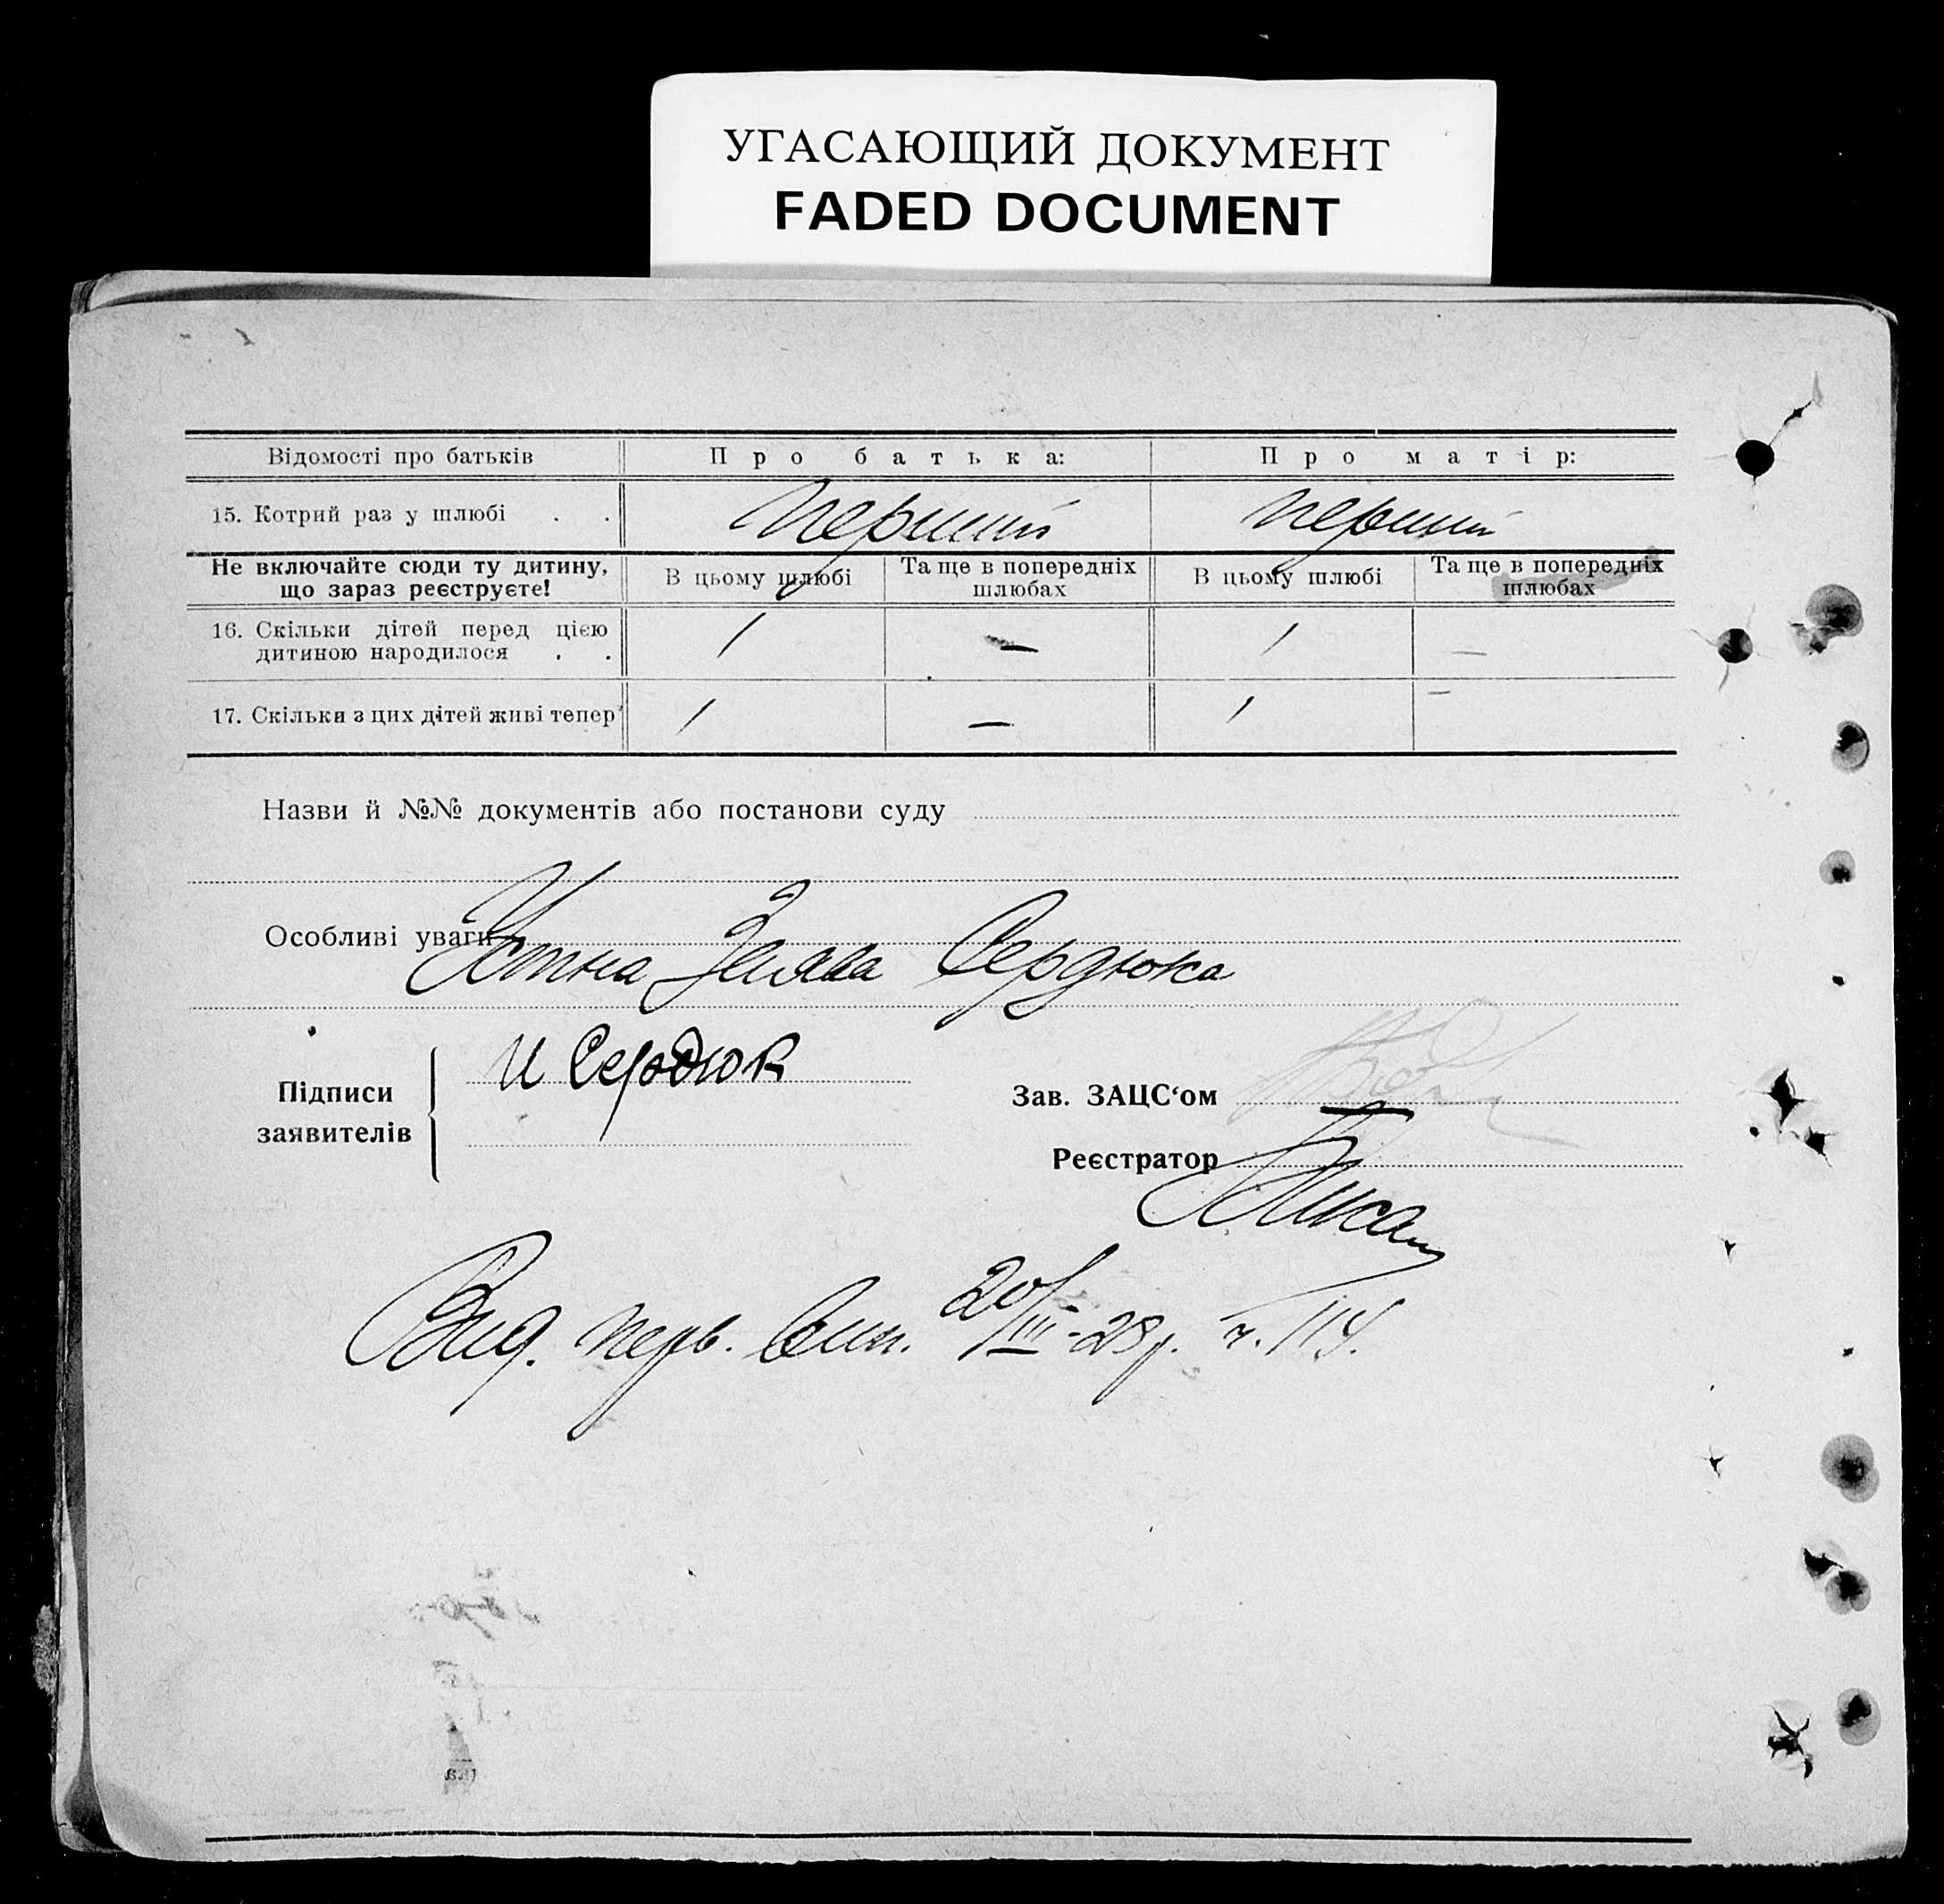 УГАСАЮЩИЙ ДОКУМЕНТ
FADED DOCUMENT
Відомості про батьків Про батька: Про матір:
15. Котрий раз у шлюбі . . перший перший
Не включайте сюди ту дитину, що зараз реєструєте! В цьому шлюбі Та ще в попередніх шлюбах В цьому шлюбі Та ще в попередніх шлюбах
16. Скільки дітей перед цією дитиною народилося . . 1 — 1 —
17. Скільки з цих дітей живі тепер 1 — 1 —
Назви й №№ документів або постанови суду
Особливі уваги
Устна Заява Сердюка
Підписи заявителів
И Сердюк
Зав. ЗАЦС‘ом
Реєстратор
Вид. перв. вип. 20/III-28р. ч. 114.